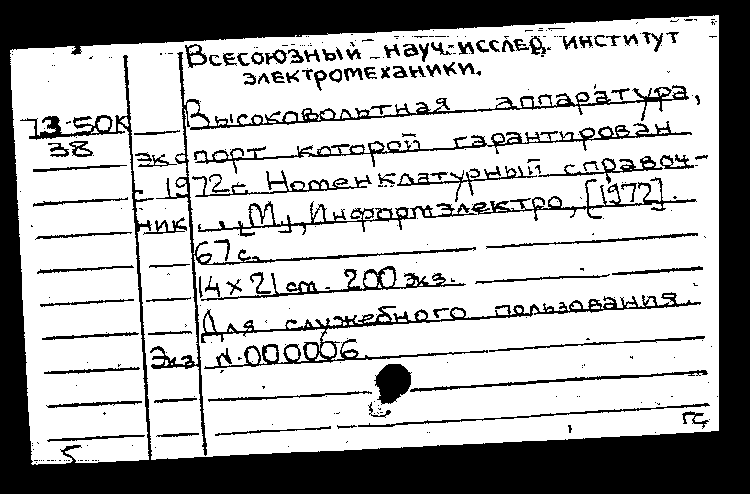 Всесоюзный науч.-исслед. институт
электромеханики.
Высоковольтная аппаратура,
73-50К
38
экспорт которой гарантирован
с 1972г. Номенклатурный справоч-
ник ... [М], Информэлектро, [1972].
67 с.
14 x 21 cm. 200 экз.
Для служебного пользования.
Экз. N.000006.
5